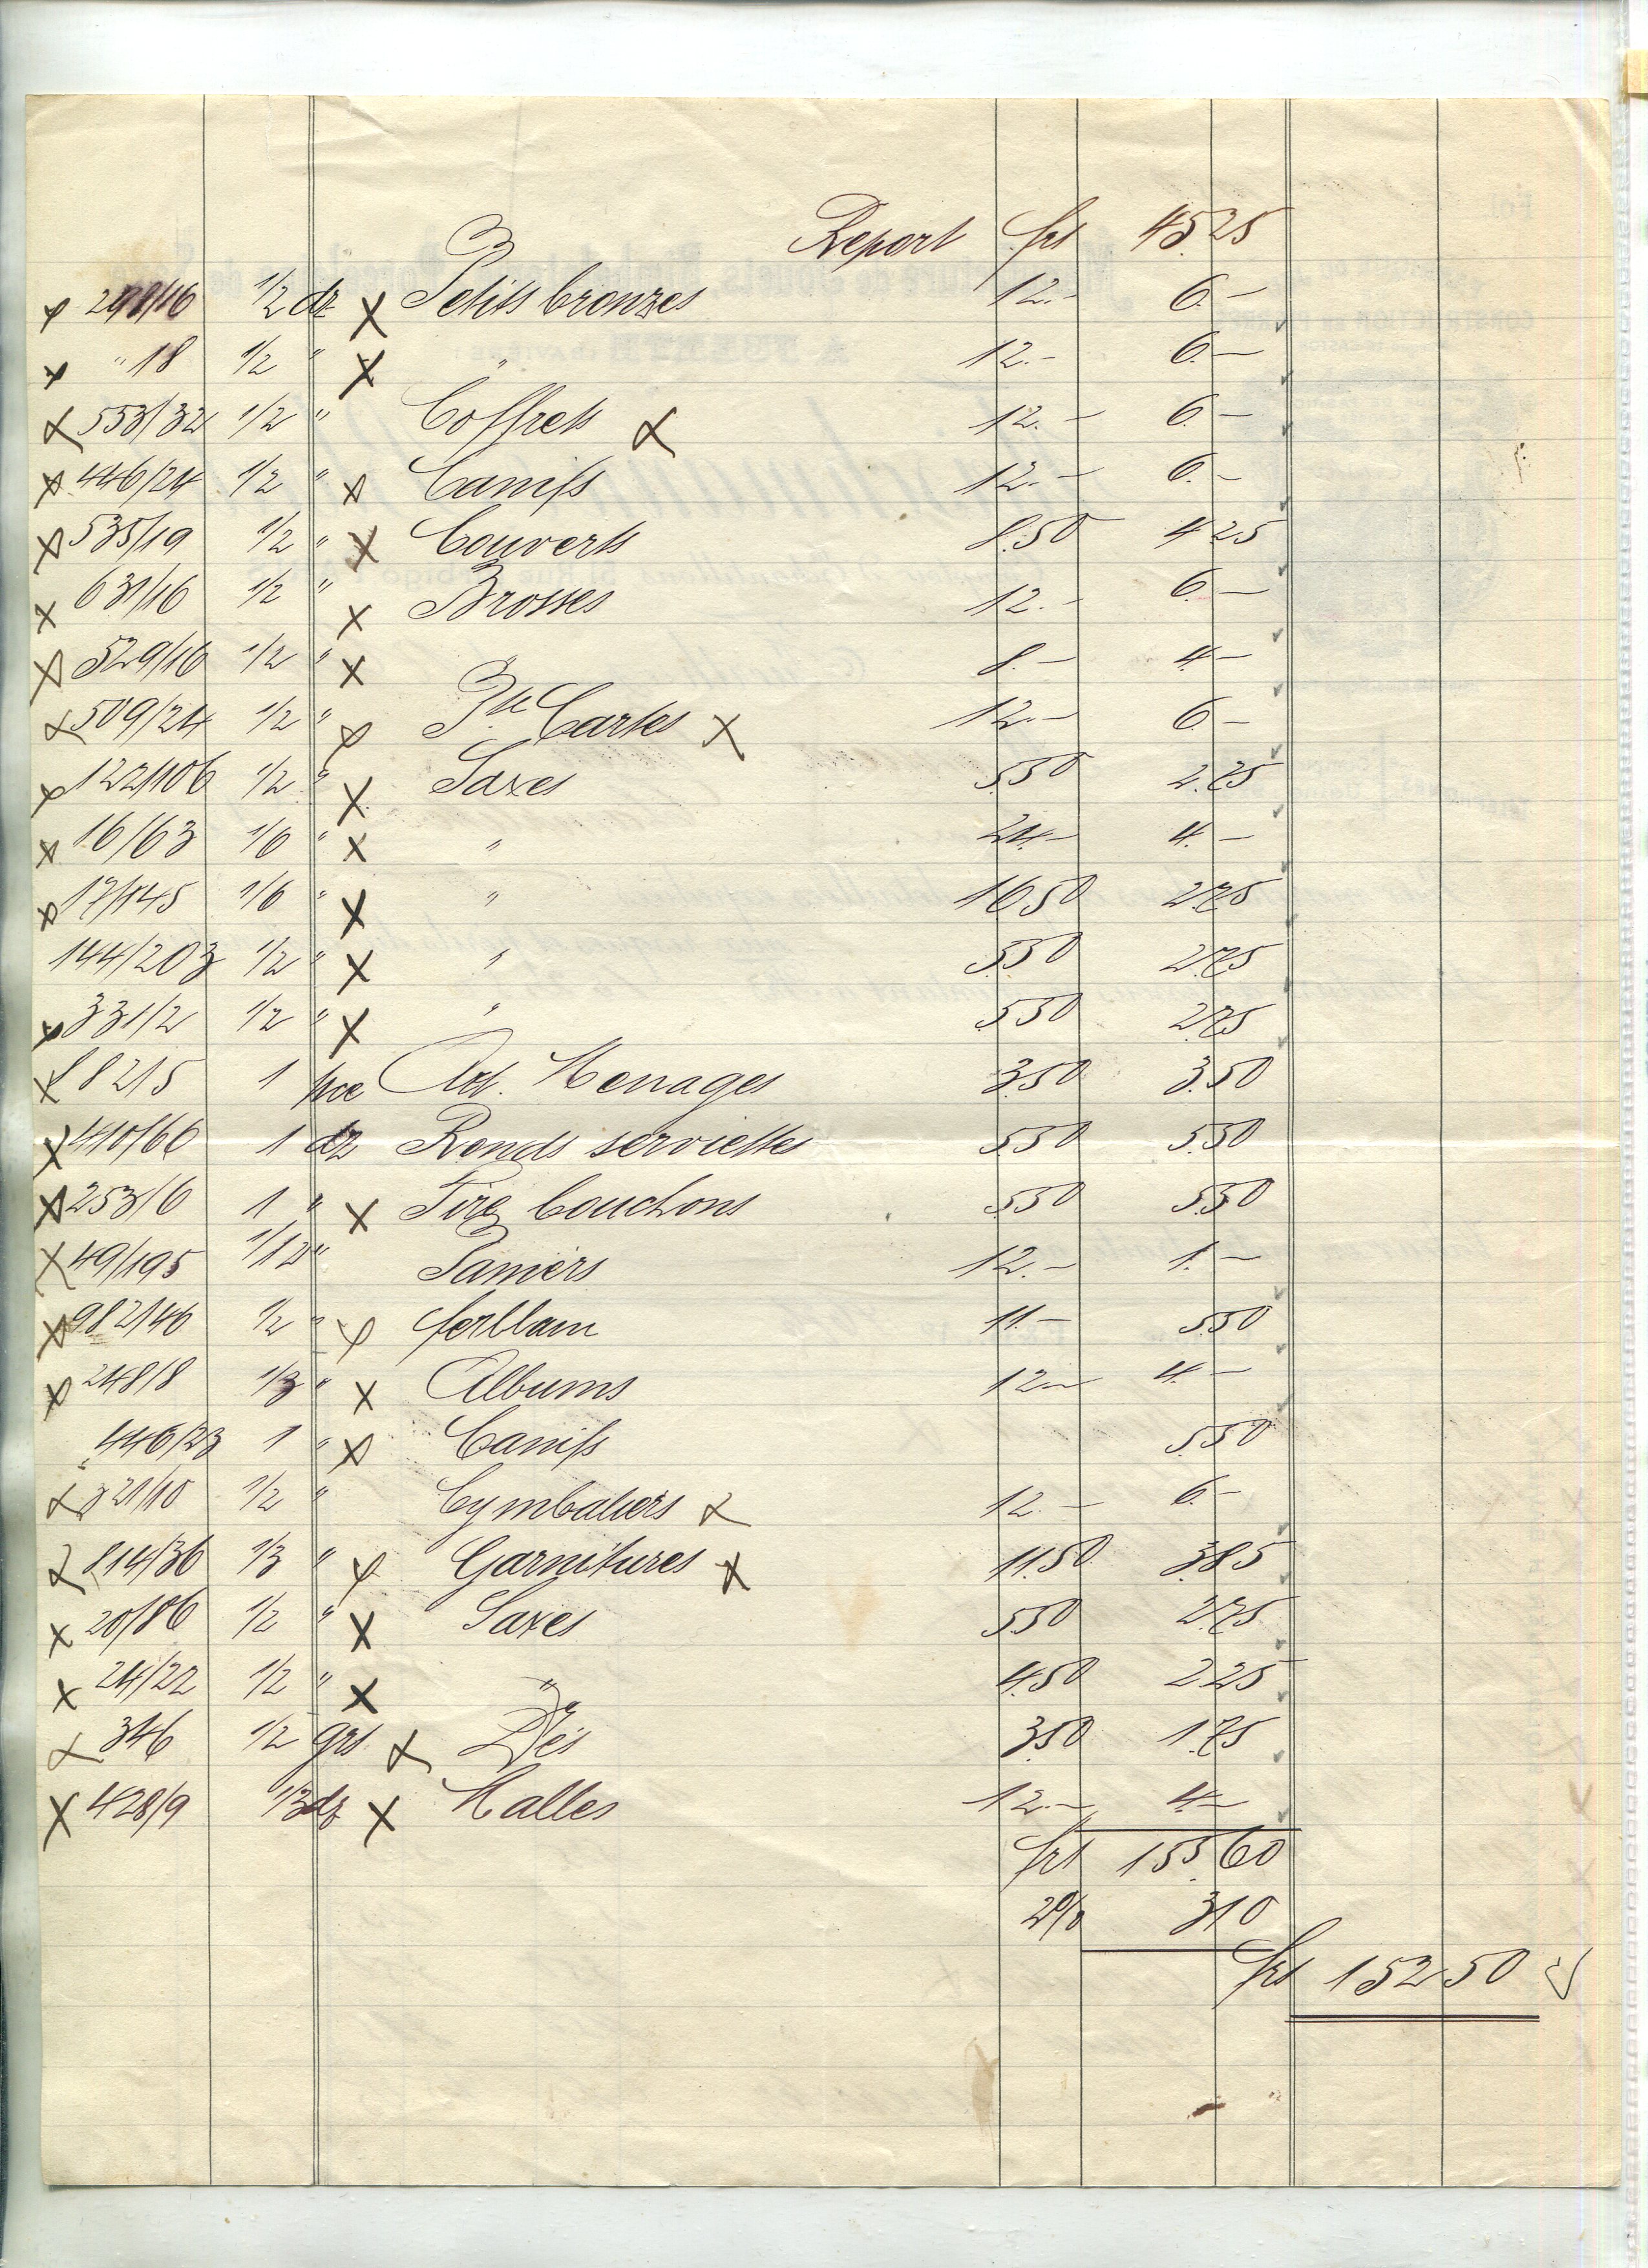 Report frs 45.25
298/16 1/2 dz Petits bronzes 12.- 6.-
" 18 1/2 " " 12.- 6.-
553/32 1/2 " Coffrets 12.- 6.-
446/24 1/2 " Canifs 12.- 6.-
535/19 1/2 " Couverts 8.50 4.25
631/16 1/2 " Brosses 12.- 6.-
529/16 1/2 " " 8.- 4.-
509/24 1/2 " Pte Cartes 12.- 6.-
122/106 1/2 " Saxes 5.50 2.75
16/63 1/6 " " 24.- 4.-
17/145 1/6 " " 16.50 2.75
144/203 1/2 " " 5.50 2.75
331/2 1/2 " " 5.50 2.75
821/5 1 pce Art. Menages 3.50 3.50
410/66 1 dz Ronds serviettes 5.50 5.50
253/6 1 " Tire bouchons 5.50 5.50
49/195 1/12 " Paniers 12.- 1.-
982/46 1/2 " 11.- 5.50
248/8 1/3 " Albums 12.- 4.-
446/23 1 " Canifs 5.50
321/10 1/2 " Cymbaliers 12.- 6.-
814/36 1/3 " Garnitures 11.50 3.85
20/86 1/2 " Saxes 5.50 2.75
24/22 1/2 " " 4.50 2.25
346 1/2 grs Dés 3.50 1.75
428/9 1/3 dz Malles 12.- 4.-
frs 155.60
2% 3.10
frs 152.50